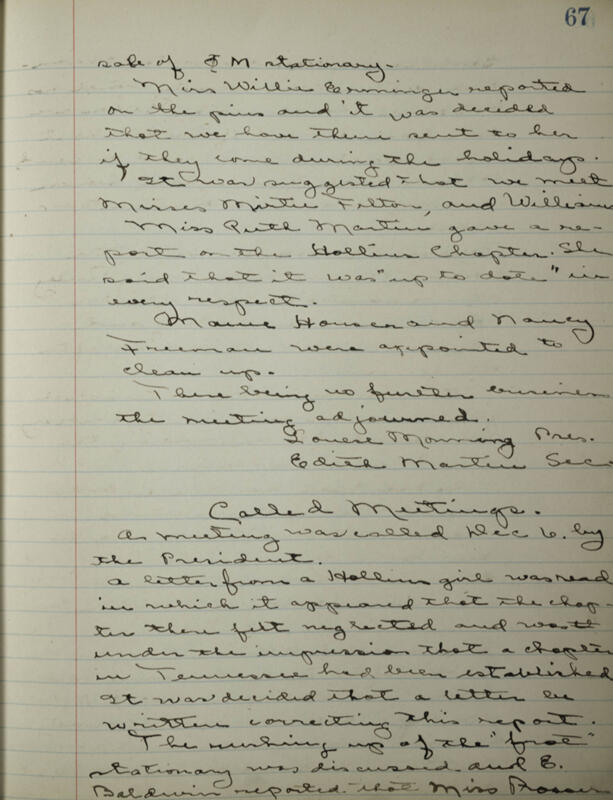 67
sale of Φ M stationary.
Miss Willie Erminger reported
on the pins and it was decided
that we have them sent to her
if they come during the holidays.
It was suggested that we meet
Misses Mixtie Felton, and William
Miss Ruth Martin gave a re-
port on the Hollins Chapter. She
said that it was "up to date" in
every respect.
Mamie Houser and Nancy
Freeman were appointed to
clean up.
There being no further business
the meeting adjourned.
Louese Monning Pres.
Edith Martin Sec.
Called Meetings.
A meeting was called Dec 6. by
the President.
A letter from a Hollins girl was read
in which it appeared that the chap
ter there felt neglected and was
under the impression that a chapter
in Tennessee had been established
It was decided that a letter be
written correcting this report.
The rushing up of the "frat"
stationary was discussed and E.
Baldwin reported that Miss Prosser